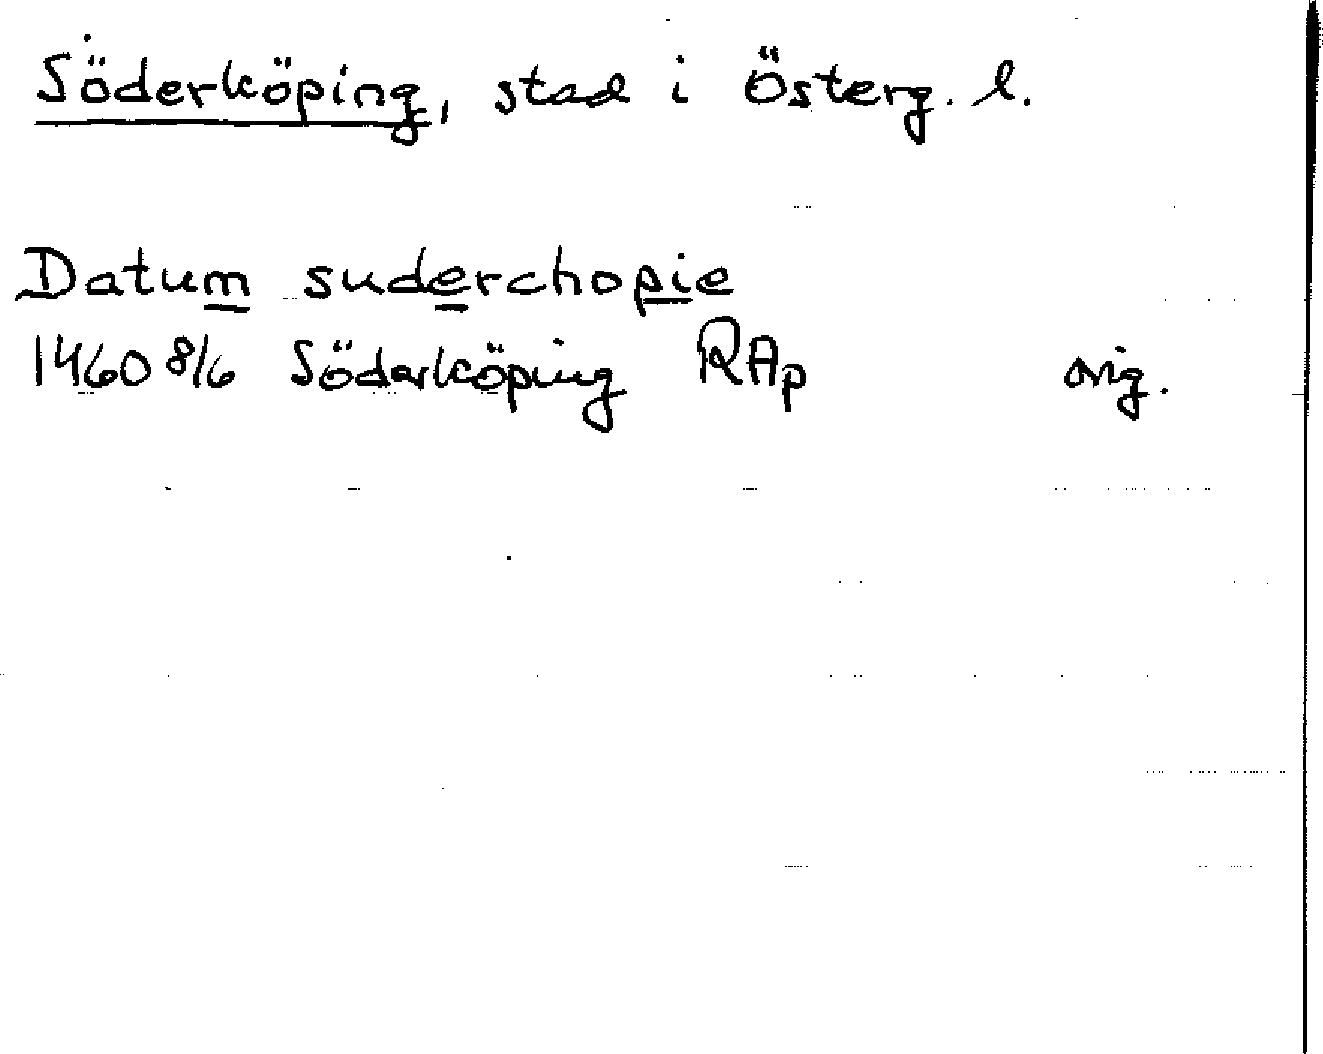 Söderköping, stad i Österg. l.
Datum suderchopie
1460 8/6 Söderköping RAp orig.